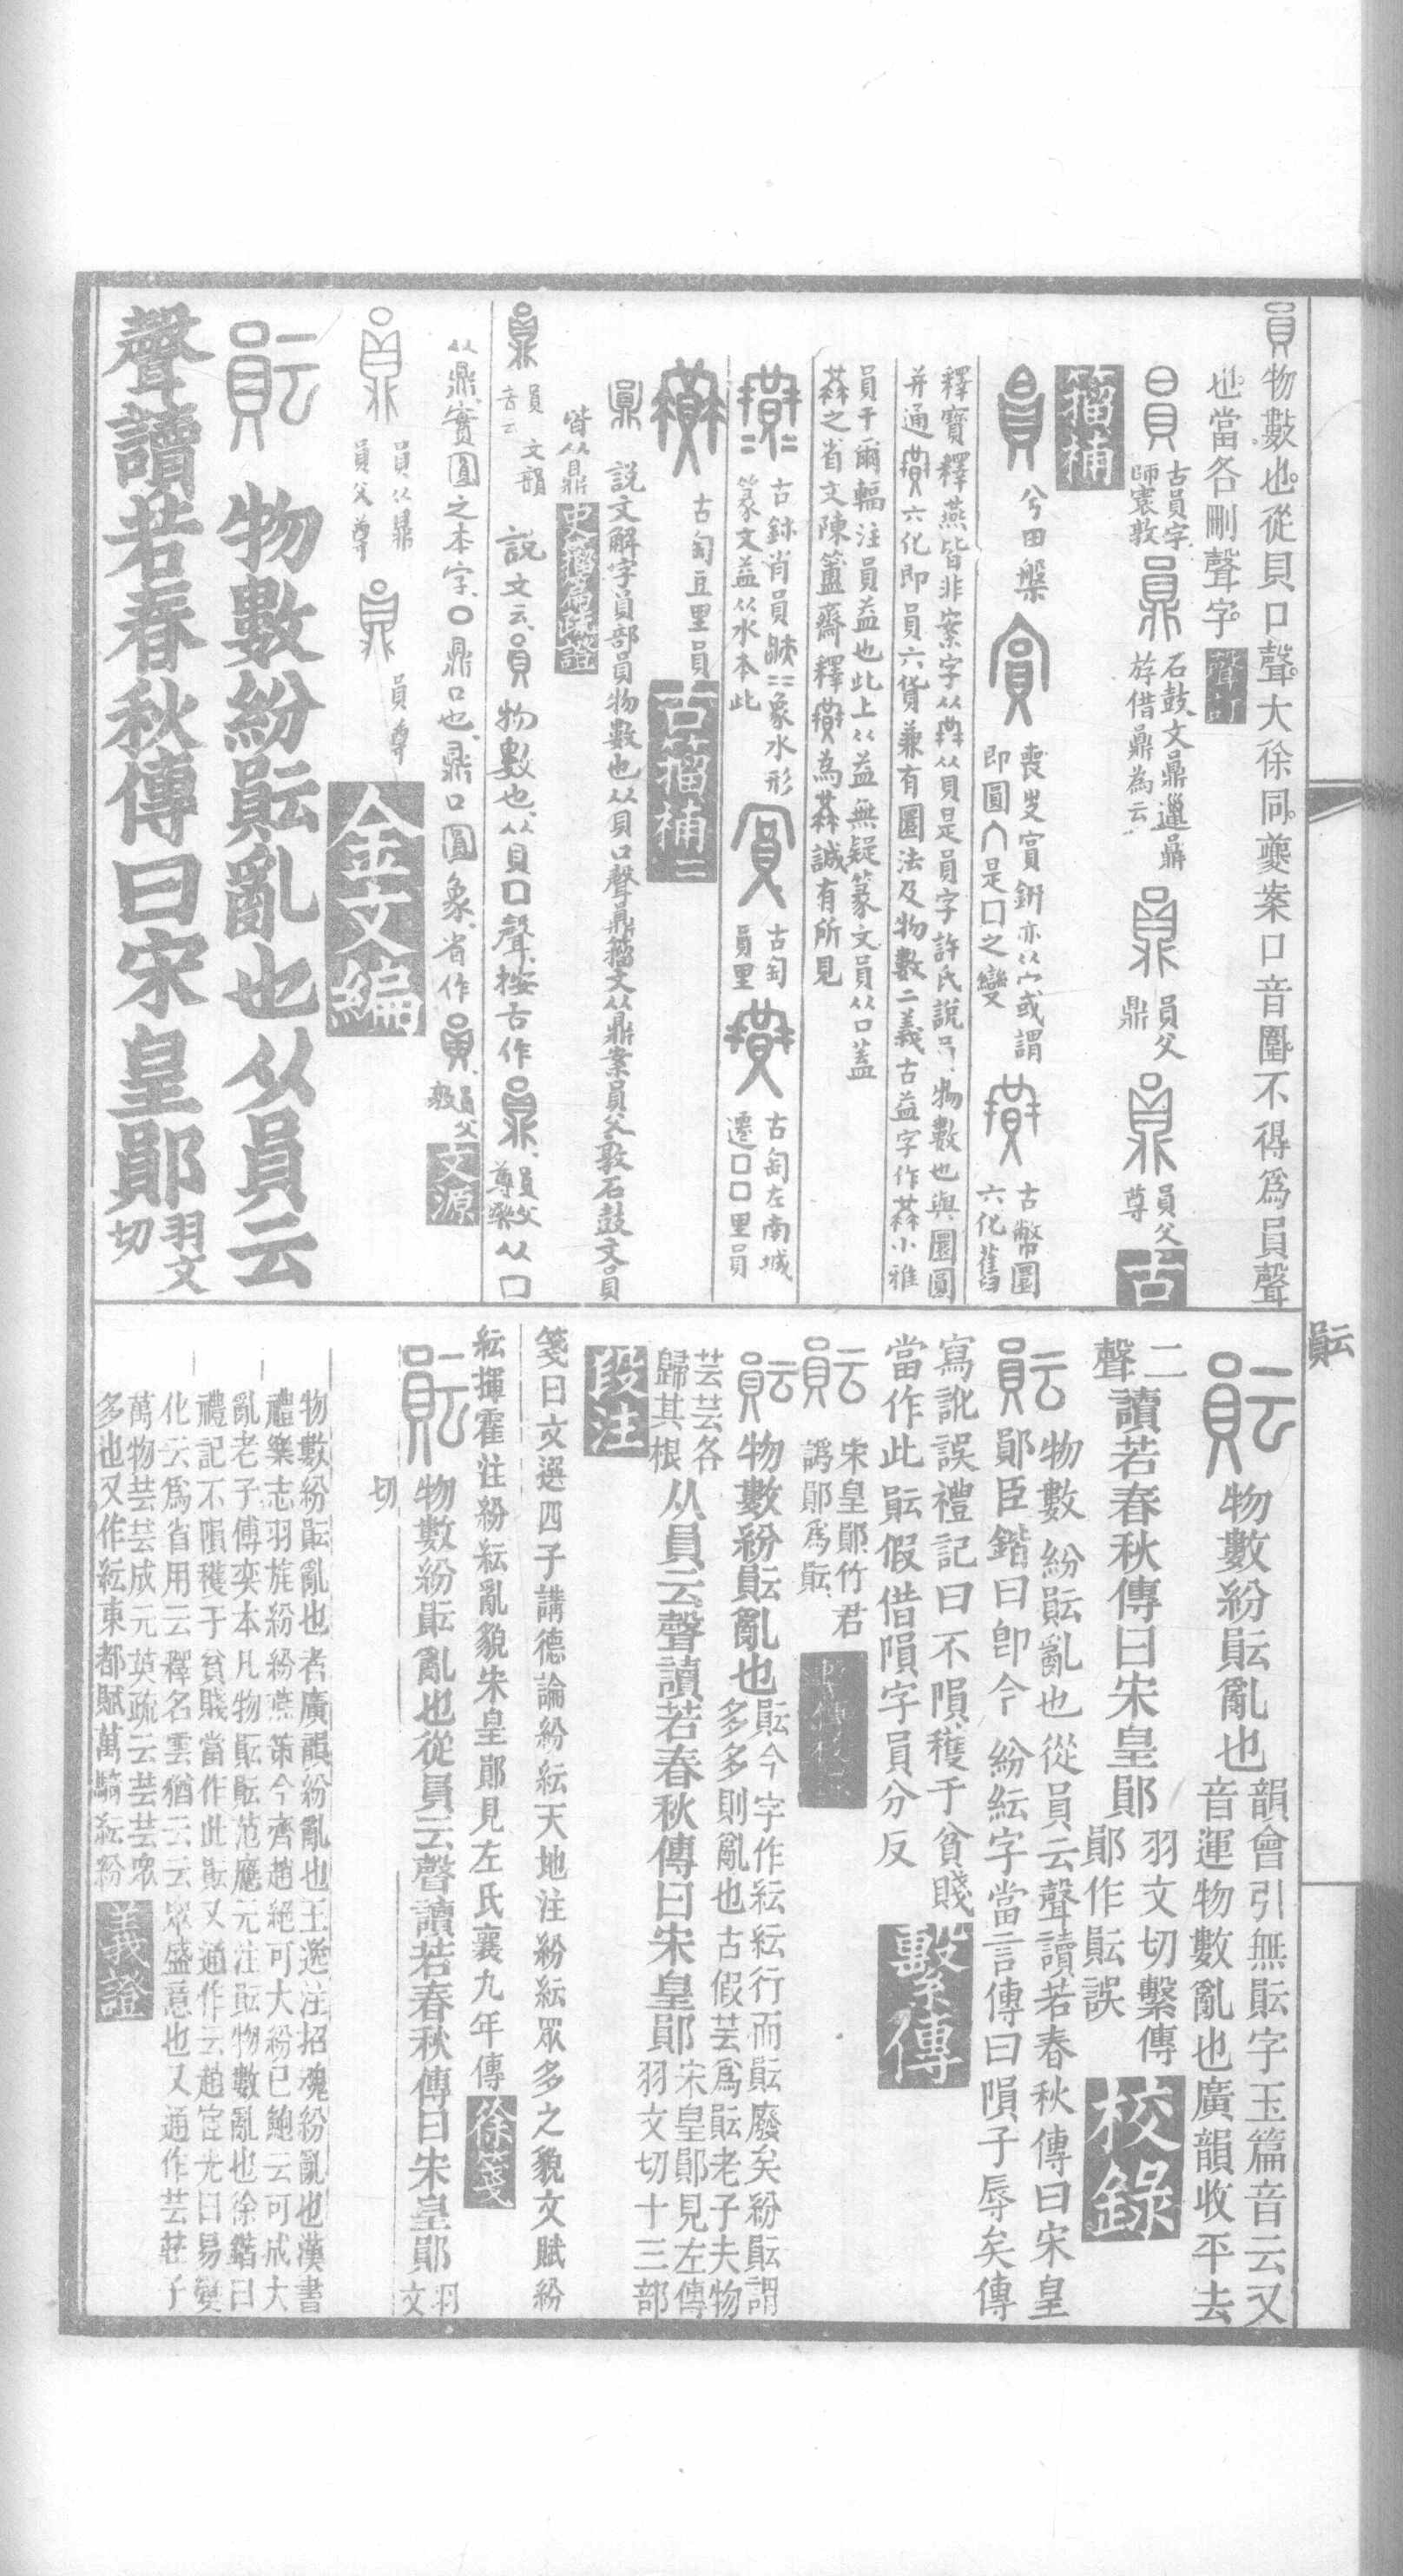 員物數也從貝口聲大徐同夔案口音圍不得爲員聲
也當各刪聲字
聲訂
古員字師寰敦
石鼓文鼎邋鼎斿借鼎為云
員父鼎
員父尊
古籀補
兮田槃
喪㕜賓鈃亦从宀或謂即圓八是囗之變
古幣圜六化舊
釋寶釋燕皆非案字从𠔉从貝是員字許氏說員物數也與圜圓
并通六化即員六貨兼有圜法及物數二義古益字作㷼小雅
員于爾輻注員益也此上从益無疑篆文員从口蓋
之省文陳簠齋釋為誠有所見
古鉨肖員象水形
篆文益从水本此
古匋員里
古匋左南城遷囗囗里員
古匋豆里員
古籀補二
說文解字員部員物數也从貝口聲鼎籀文从鼎案員父敦石鼓文員
皆从鼎
史籀篇疏證
說文云員物數也从貝口聲按古作員父尊彝从口
从鼎實圓之本字〇鼎口也鼎口圓象省作員父敦
文源
員从鼎員父尊
員尊
金文編
䫟物數紛䫟亂也从員云
聲讀若春秋傳曰宋皇鄖羽文切
䫟
䫟物數紛䫟亂也韻會引無䫟字玉篇音云又音運物數亂也廣韻收平去
二聲讀若春秋傳曰宋皇鄖羽文切繫傳鄖作䫟誤
校錄
䫟物數紛䫟亂也從員云聲讀若春秋傳曰宋皇
鄖臣鍇曰卽今紛紜字當言傳曰隕子辱矣傳
寫訛誤禮記曰不隕穫于貧賤
當作此䫟假借隕字員分反
繫傳
䫟宋皇鄖竹君
譌鄖爲䫟
䫟物數紛䫟亂也䫟今字作紜紜行而䫟廢矣紛䫟謂多多則亂也古假芸爲䫟老子夫物
芸芸各歸其根从員云聲讀若春秋傳曰宋皇鄖宋皇鄖見左傳羽文切十三部
段注
箋曰文選四子講德論紛紜天地注紛紜眾多之貌文賦紛
紜揮霍注紛紜亂貌朱皇鄖見左氏襄九年傳
徐箋
䫟物數紛䫟亂也從員云聲讀若春秋傳曰宋皇鄖羽文
切
物數紛䫟亂也者廣韻紛亂也王逸注招魂紛亂也漢書
禮樂志羽旄紛紛燕策今齊趙絕可大紛已鮑云可成大
亂老子傅奕本凡物䫟䫟范應元注䫟物數亂也徐鍇曰
禮記不隕穫于貧賤當作此䫟又通作云趙宧光曰易變
化云爲省用云釋名雲猶云云眾盛意也又通作芸莊子
萬物芸芸成元英疏云芸芸眾
多也又作紜東都賦萬騎紜紛
義證